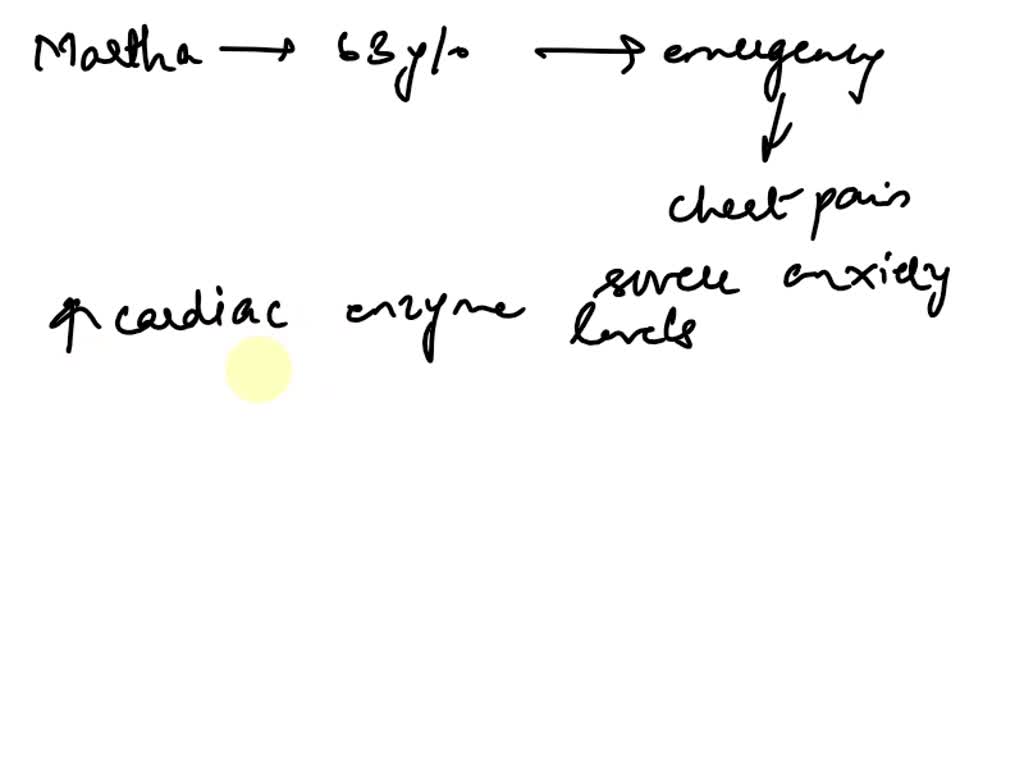 Martha → 63 y/o ⟷ emergency
↓
chest pain
severe anxiety
↑ cardiac enzyme levels